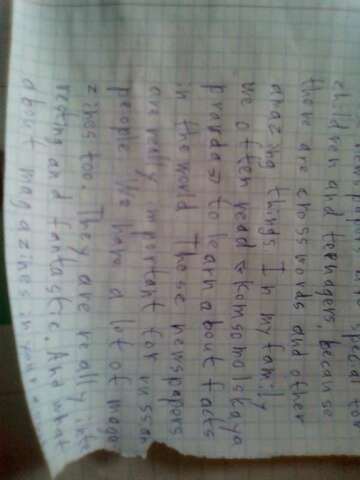 for
children and tenagers, becuse
there are crosswords and other
amazing things. In my family
we often read «Komsomolskaya
pravda» to learn about facts
in the world. These newspapers
are really important for russan
people. We have a lot of maga
zines too. They are really inte
resting and fantastic. And what
about magazines in